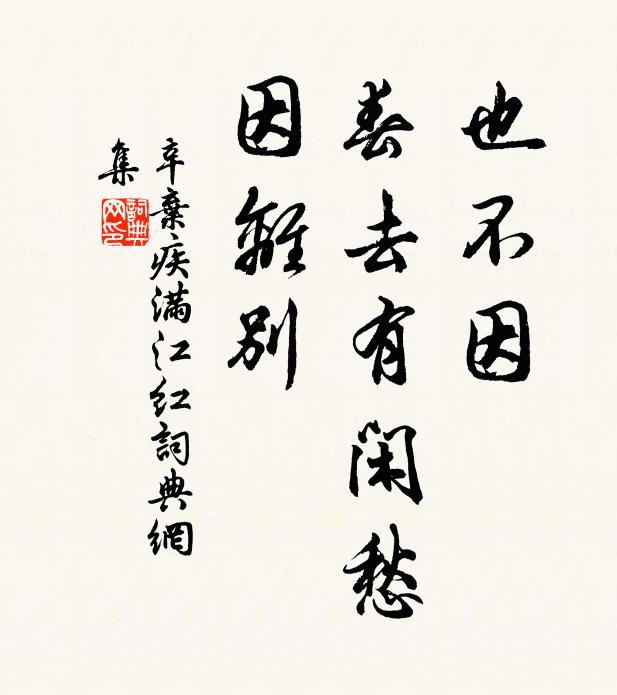 也不因
春去有閑愁
因離別
辛棄疾滿江紅詞典網
集
詞典
网印